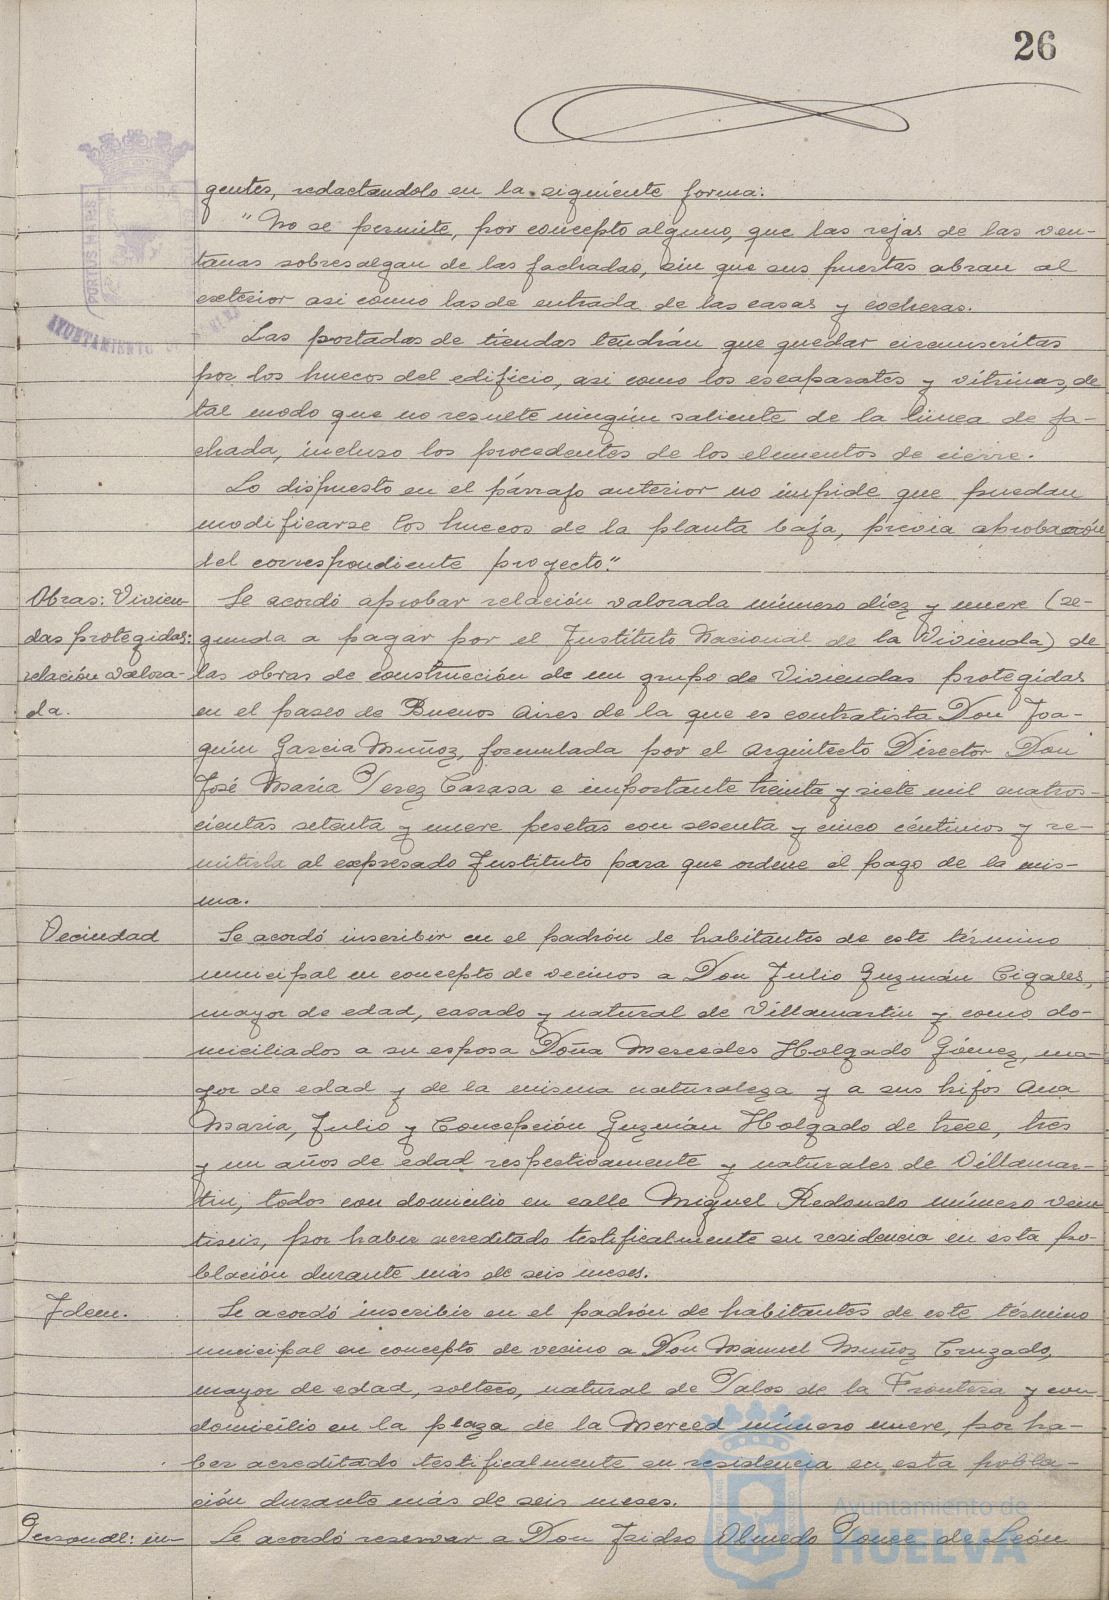 26
gentes, redactandolo en la siguiente forma:
"No se permite, por concepto alguno, que las rejas de las ven-
tanas sobresalgan de las fachadas, sin que sus puertas abran al
exterior asi como las de entrada de las casas y cocheras.
Las portadas de tiendas tendrán que quedar circunscritas
por los huecos del edificio, asi como los escaparates y vitrinas, de
tal modo que no resulte ningún saliente de la linea de fa-
chada, incluso los procedentes de los elementos de cierre.
Lo dispuesto en el párrafo anterior no impide que puedan
modificarse los huecos de la planta baja, previa aprobación
del correspondiente proyecto."
Obras: Vivien-
das protegidas:
relación valora-
da.
Se acordó aprobar relación valorada número diez y nueve (se-
gunda a pagar por el Instituto Nacional de la Vivienda) de
las obras de construcción de un grupo de Viviendas protegidas
en el paseo de Buenos Aires de la que es contratista Don Joa-
quín Garcia Muñoz, formulada por el Arquitecto Director Don
José María Perez Carasa e importante treinta y siete mil cuatros-
cientas setenta y nueve pesetas con sesenta y cinco céntimos y re-
mitirla al expresado Instituto para que ordene el pago de la mis-
ma.
Vecindad
Se acordó inscribir en el padrón de habitantes de este término
municipal en concepto de vecinos a Don Julio Guzmán Cigales,
mayor de edad, casado y natural de Villamartín y como do-
miciliados a su esposa Doña Mercedes Holgado Gómez, ma-
yor de edad y de la misma naturaleza y a sus hijos Ana
María, Julio y Concepción Guzmán Holgado de trece, tres
y un años de edad respectivamente y naturales de Villamar-
tín, todos con domicilio en calle Miguel Redondo número vein
tiseis, por haber acreditado testificalmente su residencia en esta po-
blación durante más de seis meses.
Idem.
Se acordó inscribir en el padrón de habitantes de este término
municipal en concepto de vecino a Don Manuel Muñoz Cruzado,
mayor de edad, soltero, natural de Palos de la Frontera y con
domicilio en la plaza de la Merced número nueve, por ha-
ber acreditado testificalmente su residencia en esta pobla-
ción durante más de seis meses.
Personal: in-
Se acordó reservar a Don Isidro Olmedo Ponce de León
PORTUS MARIS
AYUNTAMIENTO
Ayuntamiento de
HUELVA